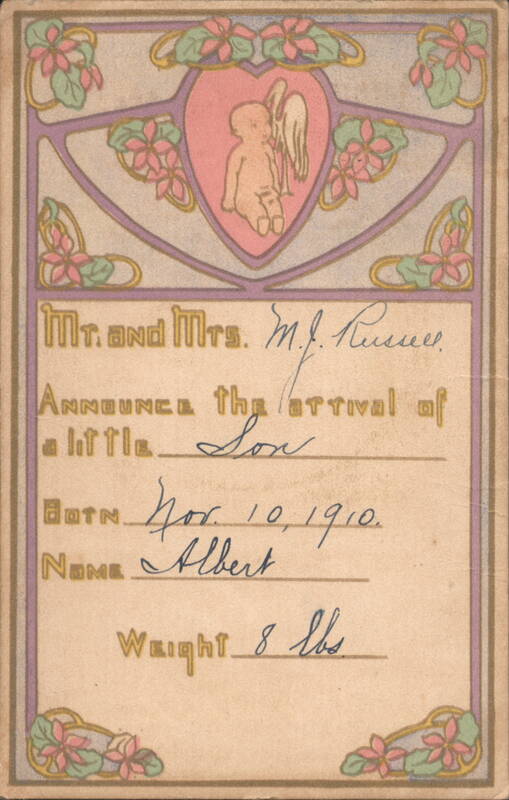 Mr. and Mrs. M.J. Russell.
Announce the arrival of
a little Son
Born Nov. 10, 1910.
Name Albert
Weight 8 lbs.